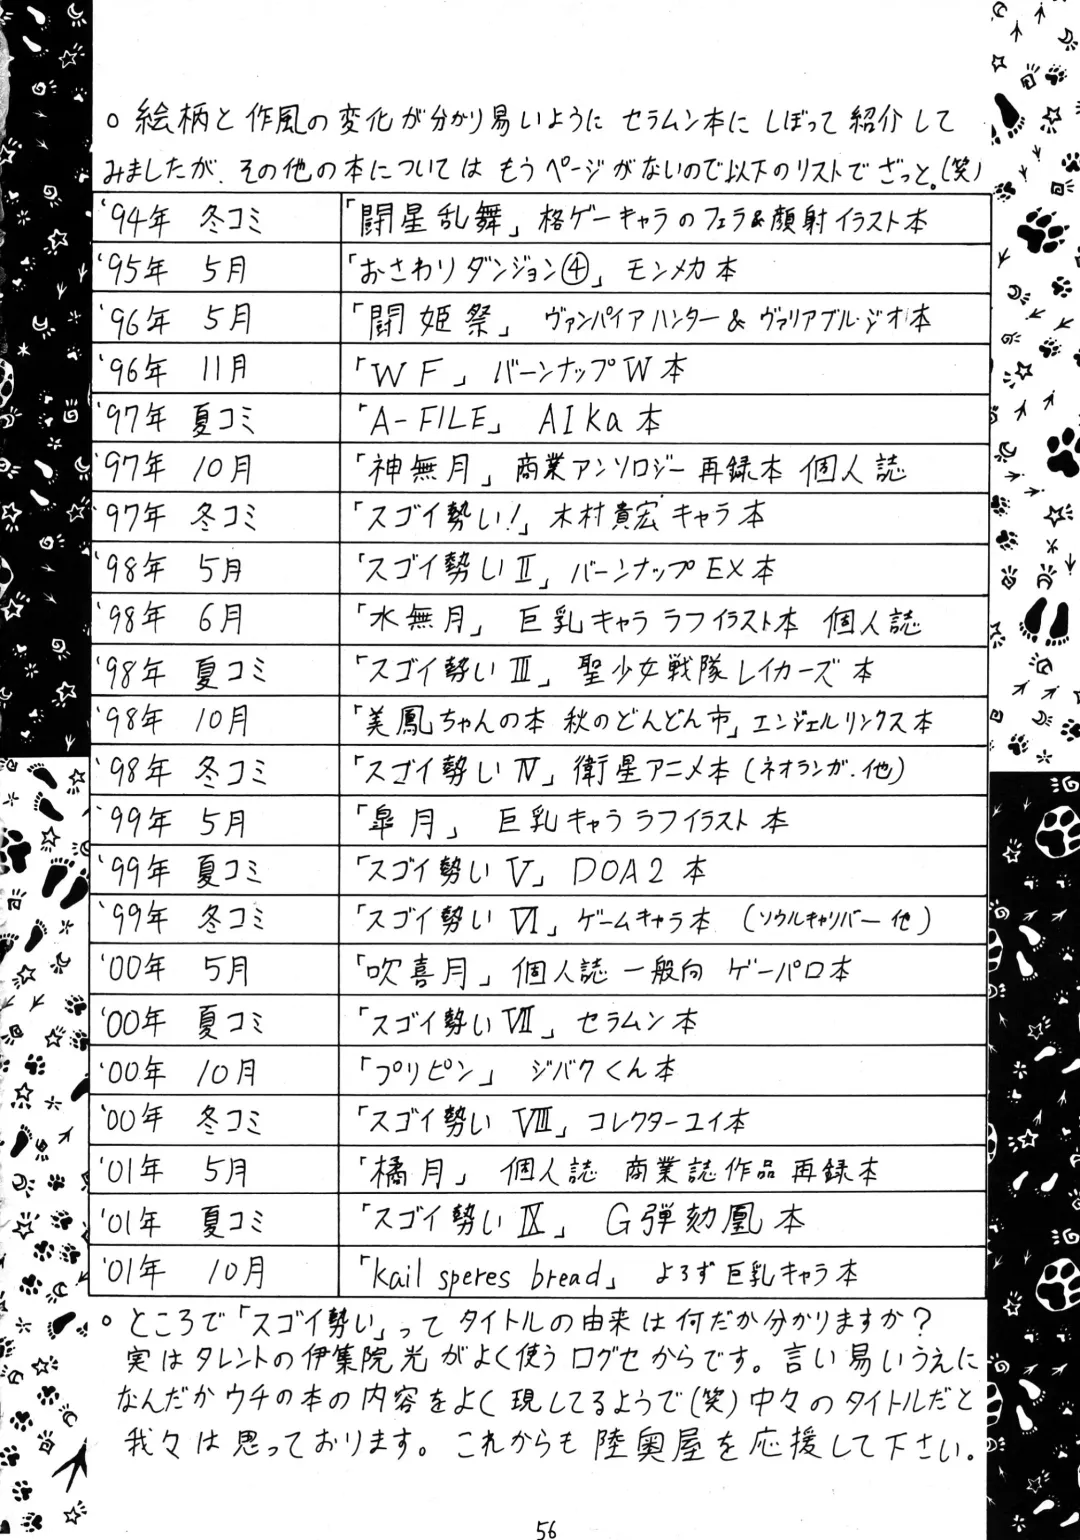 ○ 絵柄と作風の変化が分かり易いように セラムン本に しぼって 紹介して
みましたが、その他の本については もうページがないので以下のリストで ざっと。(笑)
'94年 冬コミ 「闘星乱舞」 格ゲーキャラのフェラ&顔射イラスト本
'95年 5月 「おさわりダンジョン④」 モンメカ本
'96年 5月 「闘姫祭」 ヴァンパイアハンター & ヴァリアブル・ジオ本
'96年 11月 「WF」 バーンナップW本
'97年 夏コミ 「A-FILE」 AIKa本
'97年 10月 「神無月」 商業アンソロジー再録本 個人誌
'97年 冬コミ 「スゴイ勢い!」 木村貴宏キャラ本
'98年 5月 「スゴイ勢いⅡ」 バーンナップEX本
'98年 6月 「水無月」 巨乳キャラ ラフイラスト本 個人誌
'98年 夏コミ 「スゴイ勢いⅢ」 聖少女戦隊レイカーズ本
'98年 10月 「美鳳ちゃんの本 秋のどんどん市」 エンジェルリンクス本
'98年 冬コミ 「スゴイ勢いⅣ」 衛星アニメ本 (ネオランガ.他)
'99年 5月 「皐月」 巨乳キャラ ラフイラスト本
'99年 夏コミ 「スゴイ勢いⅤ」 DOA2本
'99年 冬コミ 「スゴイ勢いⅥ」 ゲームキャラ本 (ソウルキャリバー 他)
'00年 5月 「吹喜月」 個人誌 一般向 ゲーパロ本
'00年 夏コミ 「スゴイ勢いⅦ」 セラムン本
'00年 10月 「プリピン」 ジバクくん本
'00年 冬コミ 「スゴイ勢いⅧ」 コレクターユイ本
'01年 5月 「橘月」 個人誌 商業誌作品再録本
'01年 夏コミ 「スゴイ勢いⅨ」 G弾劾凰本
'01年 10月 「kail speres bread」 よろず巨乳キャラ本
○ ところで「スゴイ勢い」って タイトルの由来は何だか分かりますか?
実はタレントの伊集院光がよく使うログセからです。言い易いうえに
なんだかウチの本の内容をよく現してるようで(笑)中々のタイトルだと
我々は思っております。これからも陸奥屋を応援して下さい。
56